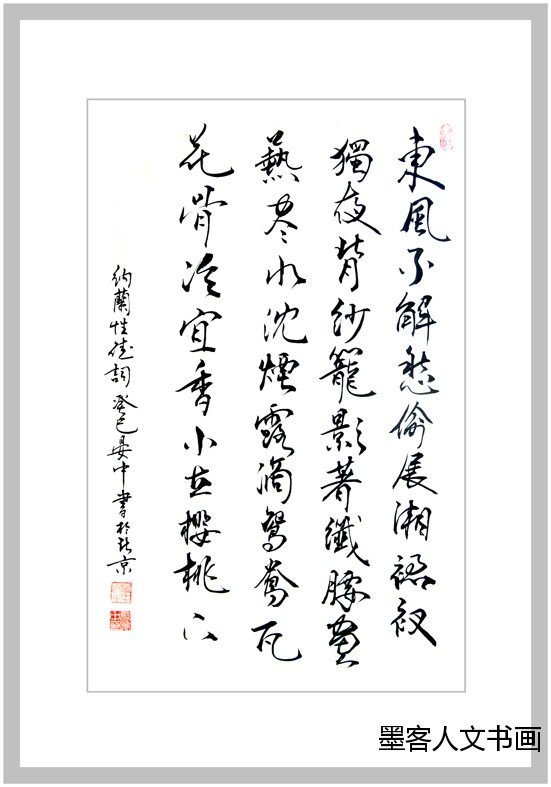 東風不解愁偷展湘裙衩
獨夜背紗籠影著纖腰畫
爇尽水沈煙露滴鴛鴦瓦
花骨冷宜香小立櫻桃下
納蘭性德詞癸巳晏中書於北京
墨客人文书画